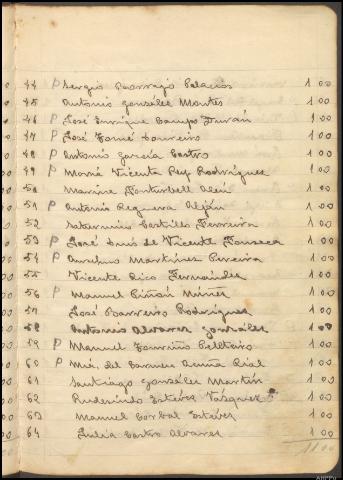 44 P Sergio Barragó Palacios 1 00
45 Antonio González Montes 1 00
46 P José Enrique Campo Durán 1 00
47 P José Tomé Loureiro 1 00
48 P Antonio García Castro 1 00
49 P María Vicenta Rey Rodríguez 1 00
50 1 00
51 P Antonio Regueira Aljan 1 00
52 Saturnino Castillo Ferreira 1 00
53 P José Luis de Vicente Fonseca 1 00
54 P Aurelino Martínez Pereira 1 00
55 Vicente Rico Fernández 1 00
56 P Manuel Piñón Núñez 1 00
57 José Barreiro Rodríguez 1 00
58 Antonio Alvarez González 1 00
59 P Manuel Fariña Peleteiro 1 00
60 P Mª del Carmen Acuña Rial 1 00
61 Santiago González Martín 1 00
62 Rudesindo Estévez Vázquez 1 00
63 Manuel Corbal Estévez 1 00
64 Julia Castro Alvarez 1 00
AHPPo